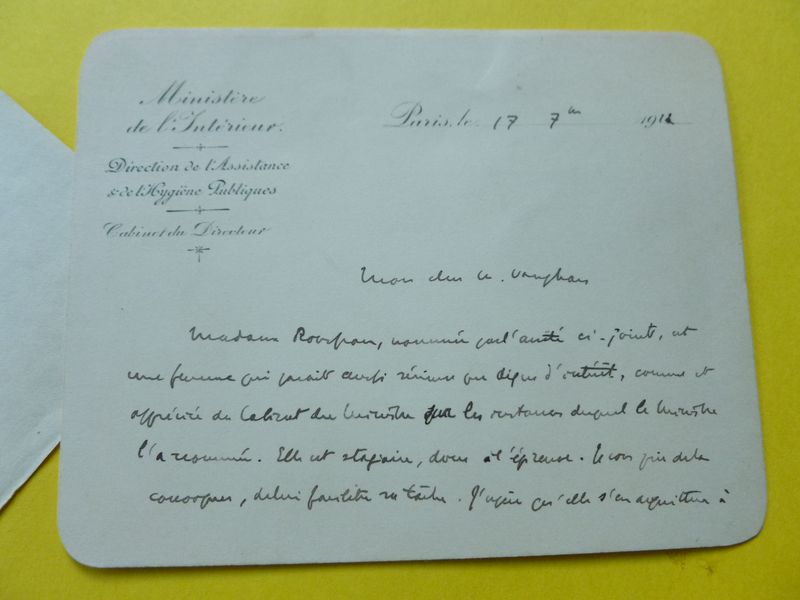 Ministère
de l'Intérieur.
Direction de l'Assistance
& de l'Hygiène Publiques
Cabinet du Directeur
Paris, le 17 7bre 1912
Mon cher M. Vaughan
Madame, nommée par l'arrêté ci-joint, est
une femme qui paraît aussi sérieuse que digne d'intérêt, connue et
appréciée du Cabinet du Ministre sur les instances duquel le Ministre
l'a nommée. Elle est stagiaire, donc à l'épreuve. Je vous prie de la
, de lui faciliter sa tâche. J'espère qu'elle s'en acquittera à